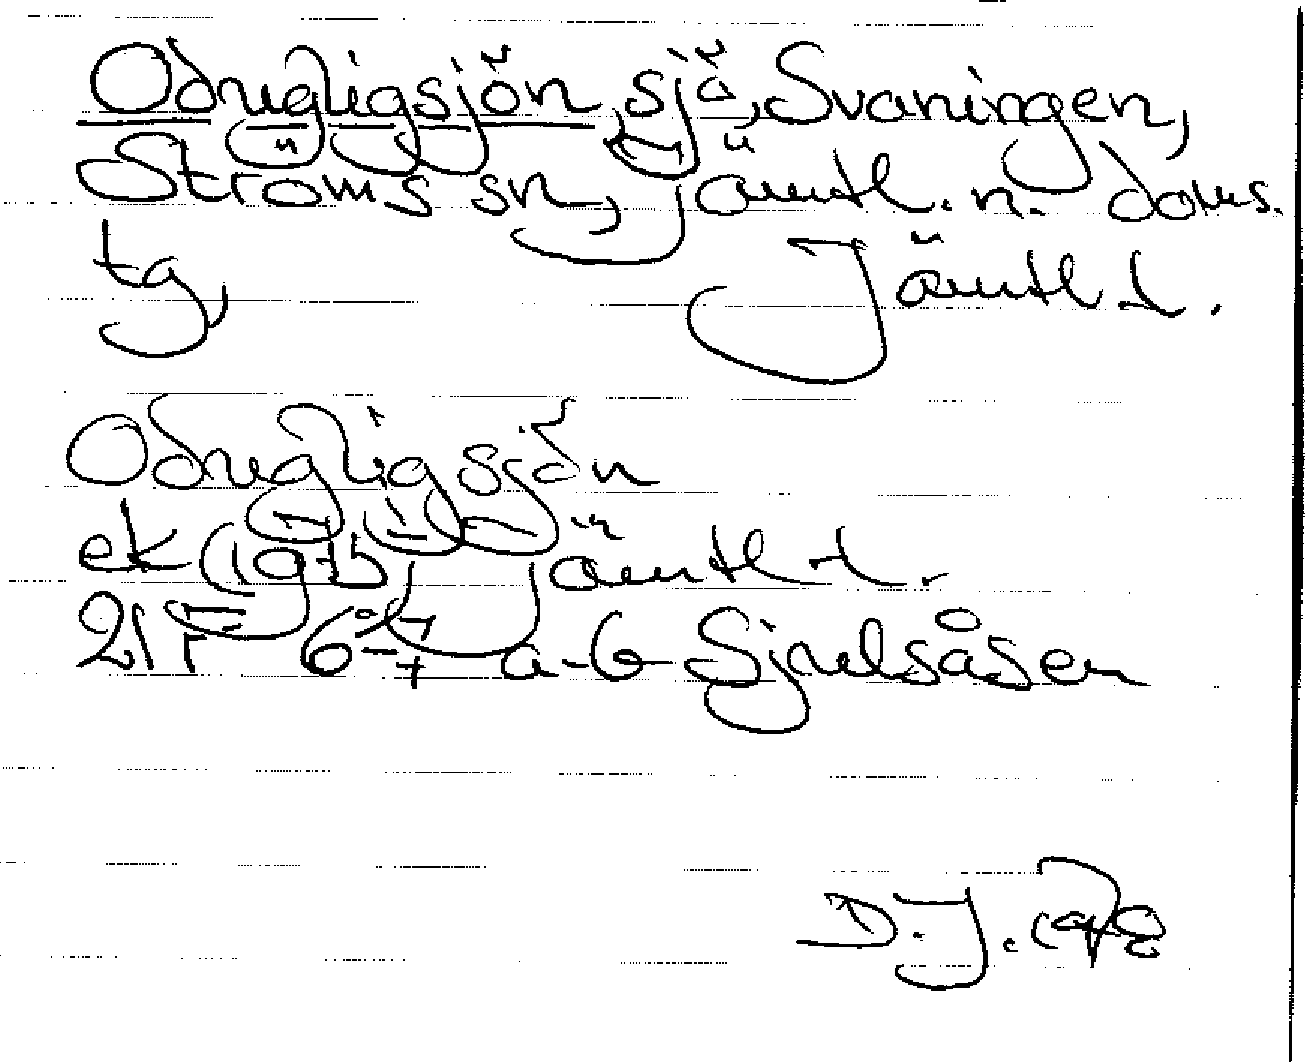 Odrugligsjön, sjö, Svaningen,
Ströms sn, Jämtl. n. doms.
tg, Jämtl l.
Odrugligsjön
ek (1972) Jämtl l.
21F 6-7 a-b Sjulsåsen
D.J. 1978